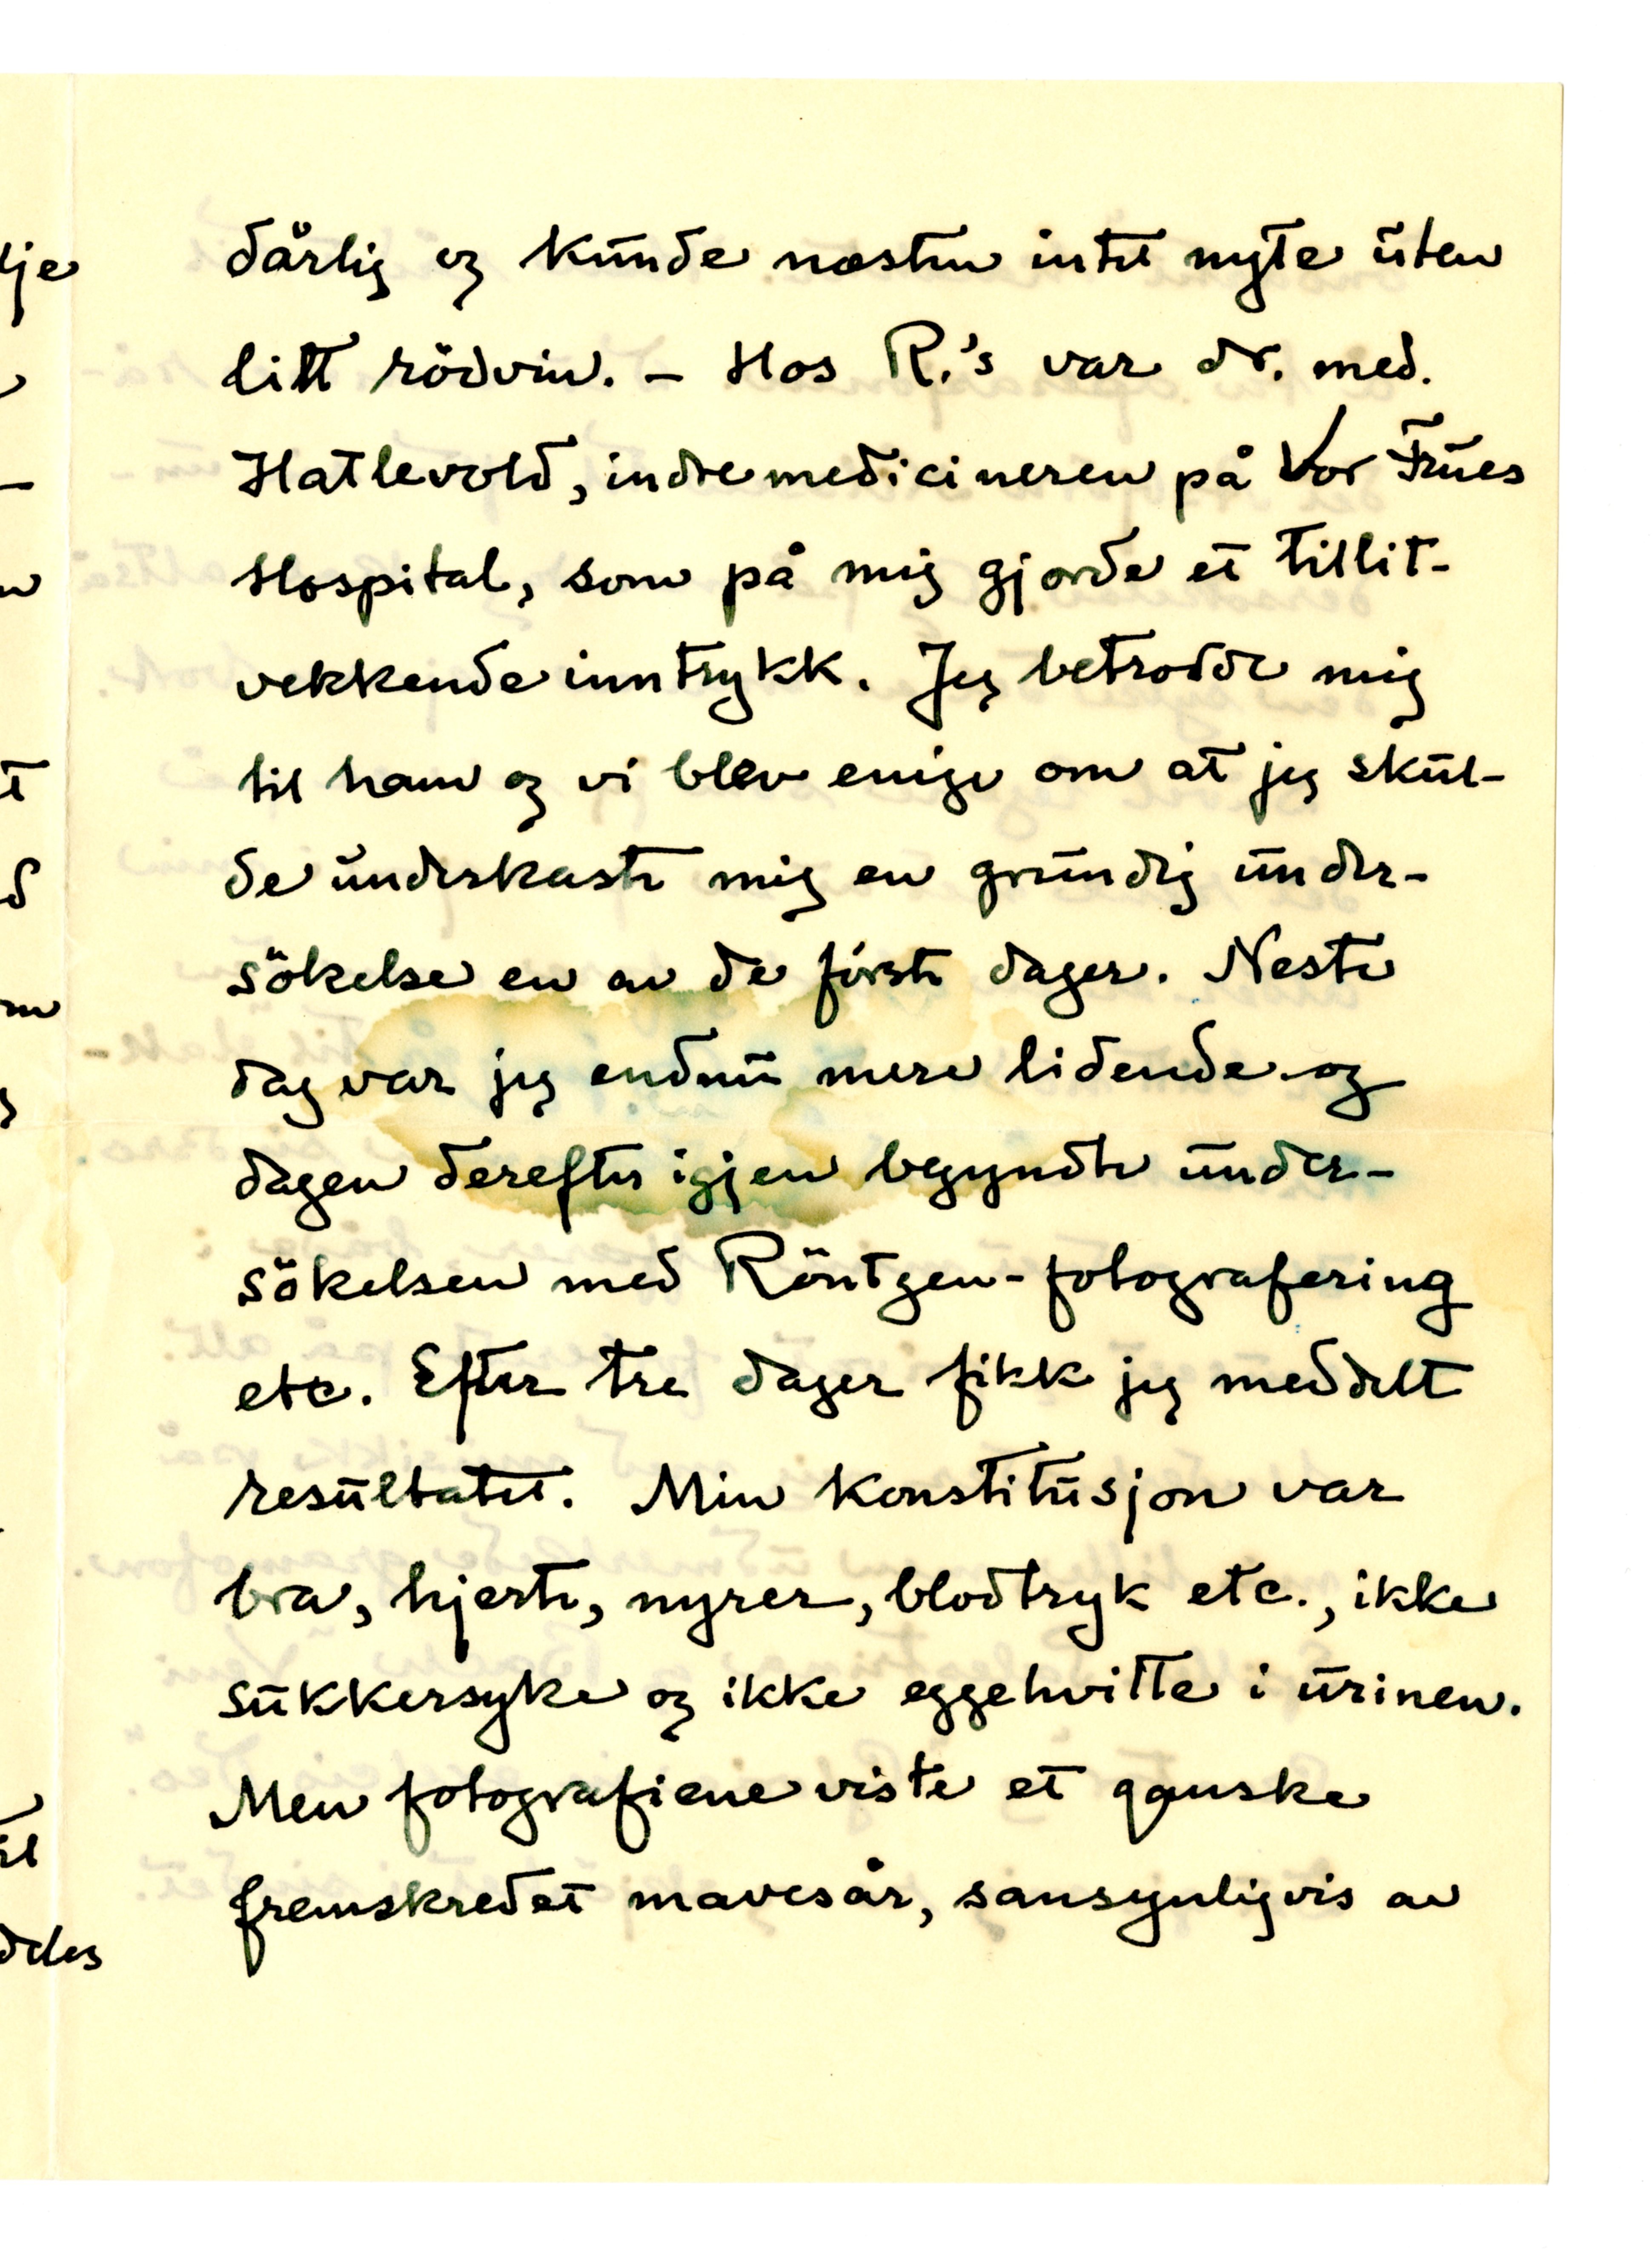 dårlig og kunde næsten intet nyte uten
litt rödvin. – Hos R.'s var dr. med.
Hatlevold, indremedicineren på Vor Frues
Hospital, som på mig gjorde et tillit-
vekkende inntrykk. Jeg betrodde mig
til ham og vi blev enige om at jeg skul-
de underkaste mig en grundig under-
sökelse en av de första dager. Neste
dag var jeg endnu mere lidende og
dagen derefter igjen begyndte under-
sökelsen med Röntgen-fotografering
etc. Efter tre dager fikk jeg meddelt
resultatet. Min konstitusjon var
bra, hjerte, nyrer, blodtryk etc., ikke
sukkersyke og ikke eggehvitte i urinen.
Men fotografiene viste et ganske
fremskredet mavesår, sansynligvis av